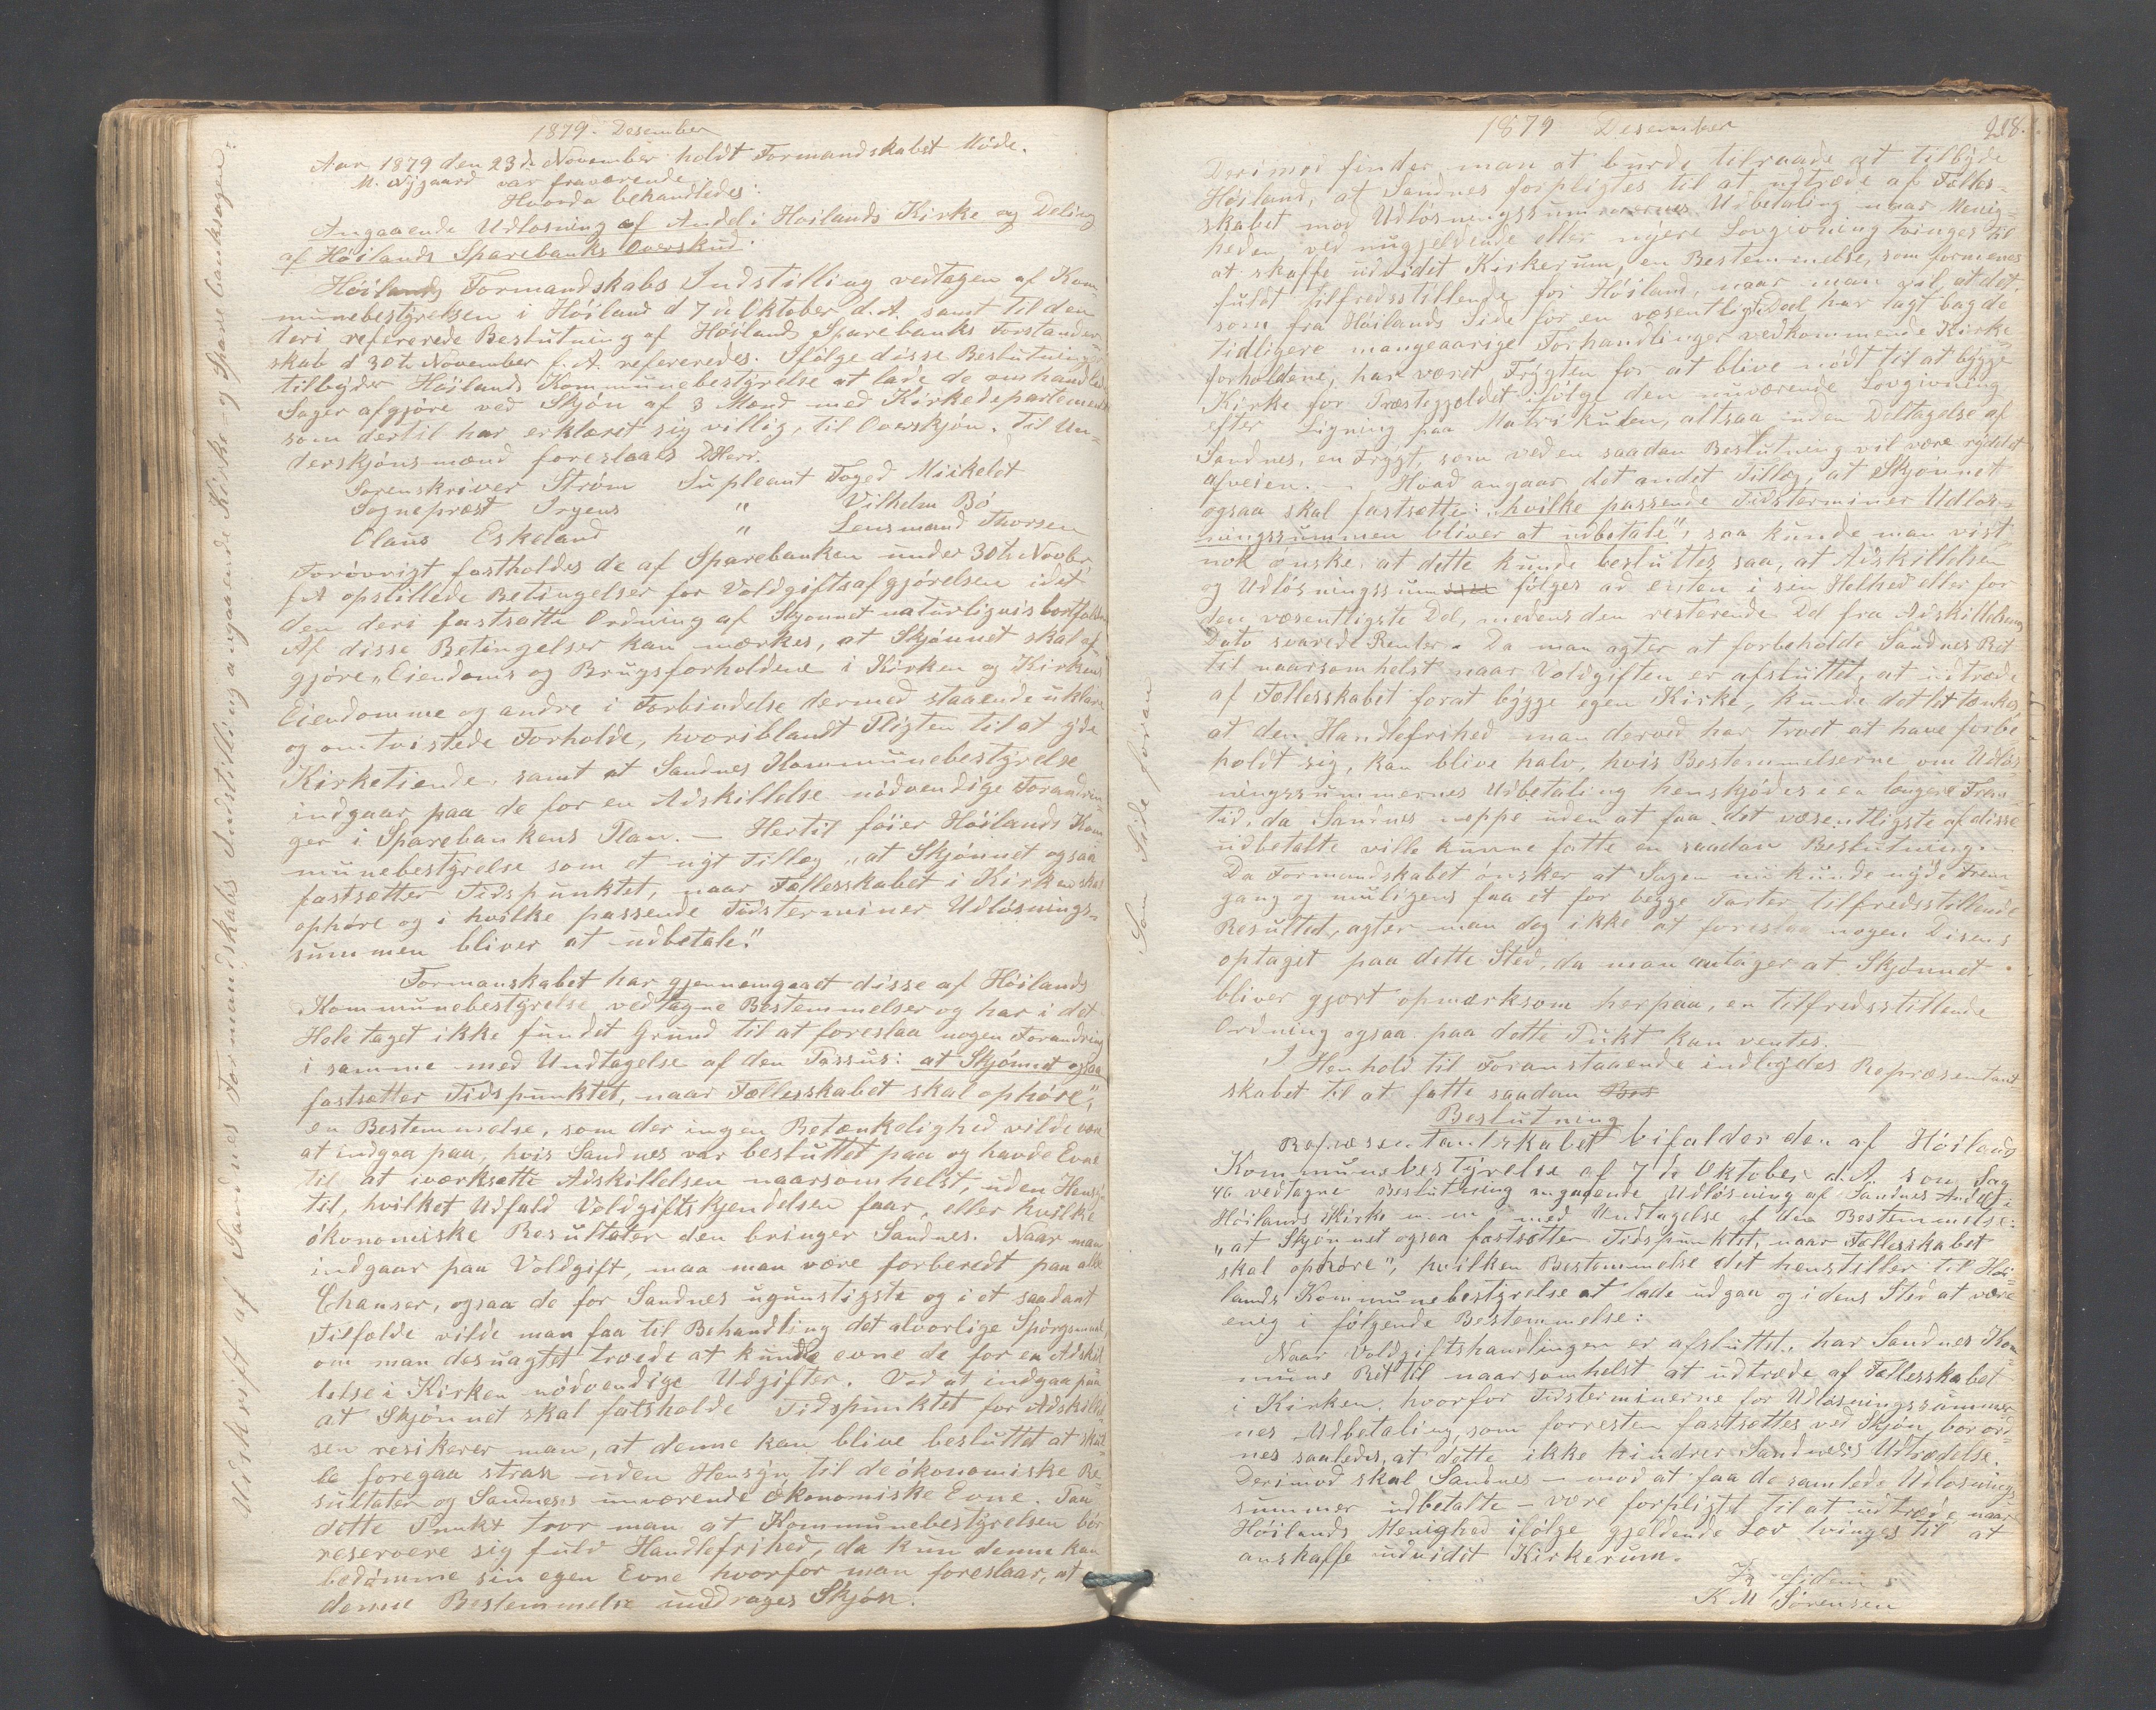 1879. Desember
Aar 1879 den 23de November holdt Formandskabet Möde.
M. Nygaard var fraværende
Hvorda behandledes:
Angaaende Udlösning af Andel i Höilands Kirke og Deling
af Höilands Sparebanks Overskud.
Höilands Formandskabs Indstilling vedtagen af Kom-
munebestyrelsen i Höiland d 7de Oktober d. A. samt til den
deri refererede Beslutning af Höilands Sparebanks Forstander-
skab d 30te November f. A. refereredes. Ifölge disse Beslutninger
tilbyder Höilands Kommunebestyrelse at lade de omhandlede
Sager afgjöre ved Skjön af 3 Mænd med Kirkedepartementet
som dertil har erklæret sig villig, til Overskjön. Til Un-
derskjönsmænd foreslaaes DHerr.
Sorenskriver Ström Supleant Foged Mickelet
Sogneprest Irgens " Vilhelm Bö
Olaus Eskeland " Lensmand Thorsen
Forövrigt fastholdes de af Sparebanken under 30te Novbr
f A opstillede Betingelser for Voldgiftsafgjörelsen idet
den deri fastsatte Ordning af Skjönnet naturligvis bortfalder
Af disse Betingelser kan mærkes, at Skjönnet skal af-
gjöre „Eiendoms og Brugsforholdene i Kirken og Kirkens
Eiendomme og andre i Forbindelse dermed staaende uklare
og omtvistede Forholde, hvoriblandt Pligten til at yde
Kirketiende, samt at Sandnes Kommunebestyrelse
indgaar paa de for en Adskillelse nödvendige Forandrin-
ger i Sparebankens Plan. — Hertil föier Höilands Kom
munebestyrelse som et nyt Tillæg „at Skjönnet ogsaa
fastsætter Tidspunktet, naar Fællesskabet i Kirken skal
ophöre og i hvilke passende Tidsterminer Udlösnings-
summen bliver at udbetale."
Formanskabet har gjennemgaaet disse af Höilands
Kommunebestyrelse vedtagne Bestemmelser og har i det
Hele taget ikke fundet Grund til at foreslaa nogen Forandring
i samme med Undtagelse af den Passus: at Skjönnet ogsaa
fastsætter Tidspunktet, naar Fællesskabet skal ophöre",
en Bestemmelse, som der ingen Betænkelighed vilde være
at indgaa paa, hvis Sandnes var besluttet paa og havde Evne
til at iværksætte Adskillelsen naarsomhelst, uden Hensyn
til, hvilket Udfald Voldgiftskjendelsen faar, eller hvilke
ökonomiske Resultater den bringer Sandnes. Naar man
indgaar paa Voldgift, maa man være forberedt paa alle
Chanser, ogsaa de for Sandnes ugunstigste og i et saadant
Tilfælde vilde man faa til Behandling det alvorlige Spörgsmaal,
om man desuagtet troede at kunde evne de for en Adskil
lelse i Kirken nödvendige Udgifter. Ved at indgaa paa
at Skjönnet skal fatsholde Tidspunktet for Adskillel-
sen resikerer man, at denne kan blive besluttet at skul-
le foregaa strax uden Hensyn til de ökonomiske Re-
sultater og Sandnes's nuværende ökonomiske Evne. Paa
dette Punkt tror man at Kommunebestyrelsen bör
reservere sig fuld Handlefrihed, da kun denne kan
bedömme sin egen Evne hvorfor man foreslaar, at
denne Bestemmelse unddrages Skjön.
Udskrift af Sandnes Formandskabs Indstilling angaaende Kirke og Sparebanksagen:
1879 Desember
218.
Derimod finder man at burde tilraade at tilbyde
Höiland, at Sandnes forpligtes til at udtræde af Fælles-
skabet mod Udlösningssummernes Udbetaling naar Menig-
heden ved nugjeldende eller nyere Lovgivning tvinges til
at skaffe udvidet Kirkerum, en Bestemmelse, som formenes
fuldt tilfredsstillende for Höiland, naar man vil, at det,
som fra Höilands Side for en væsentligst Deel har lagt bag de
tidligere mangeaarige Forhandlinger vedkommende Kirke-
forholdene, har været Frygten for at blive nödt til at bygge
Kirke for Præstegjeldet ifölge den nuværende Lovgivning
efter Ligning paa Matrikulen, altsaa uden Deltagelse af
Sandnes, en Frygt som ved en saadan Beslutning vil være ryddet
afveien. — Hvad angaar det andet Tillæg, at Skjönnet
ogsaa skal fastsætte: „hvilke passende Tidsterminer Udlös-
ningssummen bliver at udbetale", saa kunde man vist-
nok önske, at dette kunde besluttes saa, at Adskillelsen
og Udlösningssum fölges ad enten i sin Helhed eller for
den væsentligste Del, medens den resterende Del fra Adskillelsens
Dato svarede Renter. Da man agter at forbeholde Sandnes Ret
til naarsomhelst naar Voldgiften er afsluttet, at udtræde
af Fællesskabet forat bygge egen Kirke, kunde det let tænkes,
at den Handlefrihed man derved har troet at have forbe
holdt sig, kan blive halv, hvis Bestemmelserne om Udlös-
ningssummernes Udbetaling henskjödes i en længere Frem-
tid, da Sandnes neppe uden at faa det væsentligste af disse
udbetalte ville kunne fatte en saadan Beslutning.
Da Formandskabet önsker at Sagen nu kunde nyde Frem-
gang og muligens faa et for begge Parter tilfredsstillende
Resultat, agter man dog ikke at foreslaa nogen Disens
optaget paa dette Sted, da man antager at Skjönnet
bliver gjort opmærksom herpaa, en tilfredsstillende
Ordning ogsaa paa dette Pukt kan ventes. —
I Henhold til Foranstaaende indbydes Repræsentant
skabet til at fatte saadan Bes
Beslutning
Repræsentantskabet bifalder den af Höilands
Kommunebestyrelse af 7de Oktober d. A. som Sag
46 vedtagne Beslutning angaaende Udlösning af Sandnes Andel i
Höilands Kirke m. m. med Undtagelse af den Bestemmelse:
„at Skjönnet ogsaa fastsætter Tidspunktet, naar Fællesskabet
skal ophöre", hvilken Bestemmelse det henstiller til Höi-
lands Kommunebestyrelse at lade udgaa og i dens Sted at være
enig i fölgende Bestemmelse:
Naar Voldgiftshandlingen er afsluttet, har Sandnes Kom-
mune Ret til naarsomhelst at udtræde af Fællesskabet
i Kirken, hvorfor Tidsterminerne for Udlösningssummer
nes Udbetaling, som forresten fastsættes ved Skjön, bör ord-
nes saaledes, at dette ikke hindrer Sandnes's Udtrædelse.
Derimod skal Sandnes — mod at faa de samlede Udlösnings
summer udbetalte — være forpligtet til at udtræde naar
Höilands Menighed ifölge gjeldende Lov tvinges til at
anskaffe udvidet Kirkerum.
K M Sörensen
Som Side foran